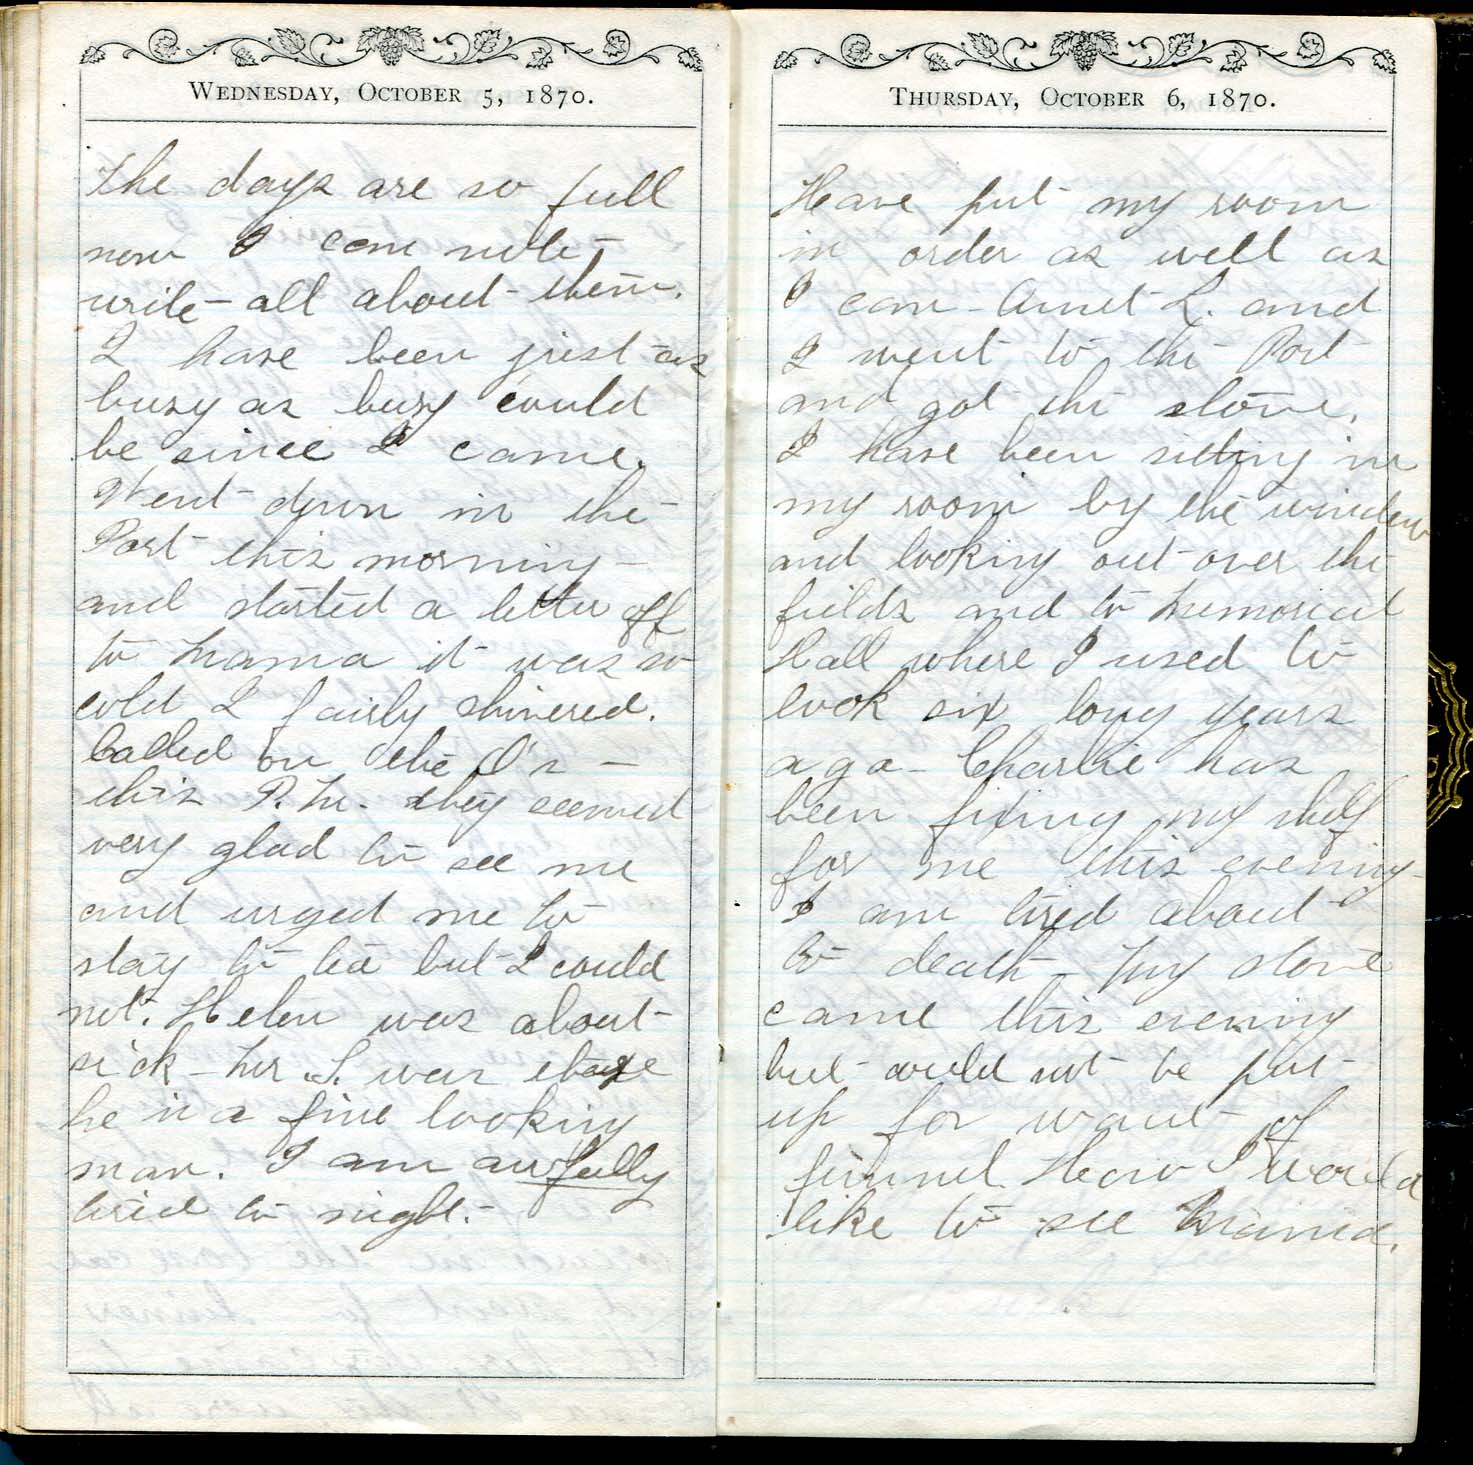 WEDNESDAY, OCTOBER 5, 1870.
The days are so full
now I can not
write all about them.
I have been just as
busy as busy could
be since I came.
Went down in the
Port this morning -
and started a letter off
to Mama it was so
cold I fairly shivered.
Called on the D's -
this P.M. they seemed
very glad to see me
and urged me to
stay to tea but I could
not. Helen was about
sick - Mr S. was there
he is a fine looking
man. I am awfully
tired to night. -
THURSDAY, OCTOBER 6, 1870.
Have put my room
in order as well as
I can - Aunt L. and
I went to the Port
and got the stove.
I have been sitting in
my room by the window
and looking out over the
fields and to Memorial
Hall where I used to
look six long years
ago - Charlie has
been fixing my shelf
for me this evening -
I am tired about
to death - My stove
came this evening
but could not be put
up for want of
funnel. How I would
like to see Mama.